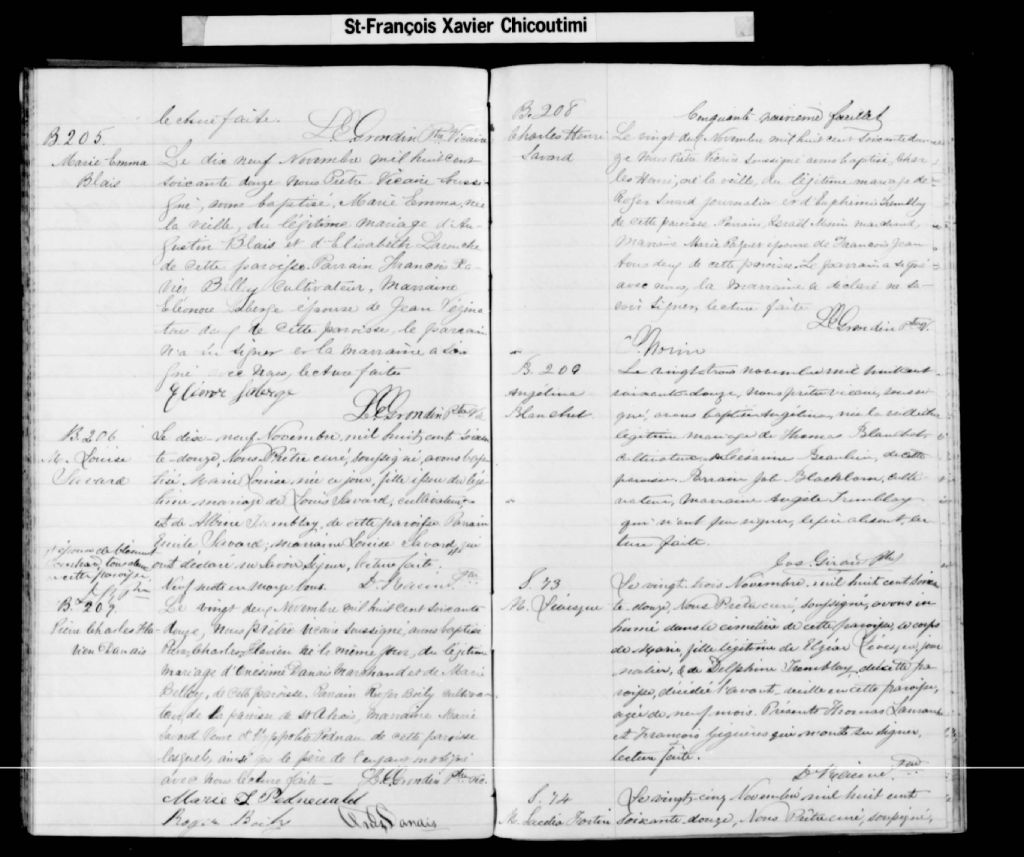 St-François Xavier Chicoutimi
lecture faite.
L.C. Grondin Ptre Vicaire
B. 205.
Marie Emma
Blais
Le dix neuf Novembre mil huit cent
soixante douze nous Prêtre Vicaire soussi-
gné, avons baptisé, Marie Emma, née
la veille, du légitime mariage d'Au-
gustin Blais et d'Elisabeth
de cette paroisse. Parrain Francois Xa-
vier Billy Cultivateur, Marraine
Eléonore Laberge épouse de Jean
tous deux de cette paroisse, le parrain
n'a su signer et la marraine a si-
gné avec nous, lecture faite
Eléonor Laberge
L.C. Grondin Ptre
B. 206
M. Louise
Savard
Le dix-neuf Novembre, mil huit cent soixan
te-douze, Nous Prêtre curé, soussigné, avons bap
tisé, Marie Louise, née ce jour, fille issue du légi
time mariage de Louis Savard, cultivateur,
et de Albine Tremblay, de cette paroisse Parrain
Emile Savard; marraine Louise Savard, qui
ont déclaré ne savoir signer, lecture faite.
Neuf mots en marge bons. D. Racine Ptre
épouse de Clément
tous deux
de cette paroisse
B. 207
Pierre Charles Fla-
vien Danais
Le vingt deux Novembre mil huit cent soixante
douze, nous prêtre vicaire soussigné, avons baptisé
Pierre, Charles, Flavien né le même jour, du légitime
mariage d'Onésime Danais Marchand et de Marie
de cette paroisse. Parrain Roger Boily cultiva-
teur, de la paroisse de St Alexis, Marraine Marie
de cette paroisse
lesquels, ainsi que le père de l'enfant ont signé
avec nous lecture faite— L.C. Grondin Ptre Vic.
Marie L Pedneault
Roger Boily
Danais
B. 208
Charles Henri
Savard
Cinquante neuvième feuillet
Le vingt deux Novembre mil huit cent soixante dou-
ze nous Prêtre Vicaire soussigné avons baptisé, Char
les Henri, né la veille, du légitime mariage de
Roger Savard journalier et d'Euphémie Tremblay
de cette paroisse Parrain, Israël Morin marchand,
Marraine Marie épouse de Francois Jean
tous deux de cette paroisse. Le parrain a signé
avec nous, la Marraine a déclaré ne sa-
voir signer, lecture faite
L.C. Grondin Ptre
Morin
B. 209
Angélina
Blanchet
Le vingt trois novembre mil huit cent
soixante douze, nous prêtre vicaire, soussi
gné, avons baptisé Angélina, née la veille du
légitime mariage de Thomas Blanchet
cultivateur, de Césarine de cette
paroisse. Parrain Job Blackburn, culti-
vateur, Marraine Angèle Tremblay
qui n'ont pu signer, le père absent, lec
ture faite.
Jos. Girard Ptre
S. 73
M. Lévesque
Le vingt-trois Novembre, mil huit cent soixan
te-douze, Nous Prêtre curé, soussigné, avons in
humé dans le cimetière de cette paroisse, le corps
de Marie, fille légitime de Elzéar Lévesque, jour
nalier, & de Delphine Tremblay, de cette pa
roisse, décédée l'avant-veille en cette paroisse,
agée de neuf mois. Présents Thomas
et Francois qui n'ont su signer,
lecture faite.
D. Racine Ptre
S. 74
M. Fortin
Le vingt-cinq Novembre mil huit cent
soixante-douze, Nous Prêtre curé, soussigné,